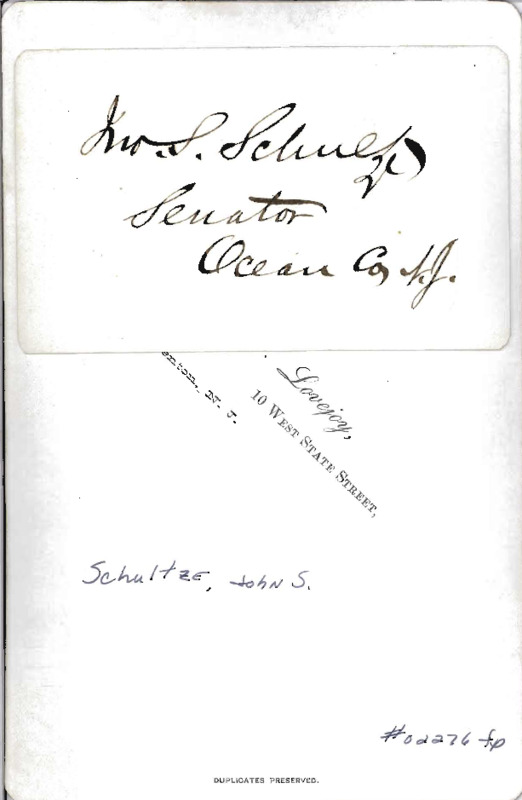 Jno. S. Schultze
Senator
Ocean Co. N.J.
Lovejoy,
10 WEST STATE STREET,
enton, N. J.
Schultze, John S.
#02276 fp
DUPLICATES PRESERVED.